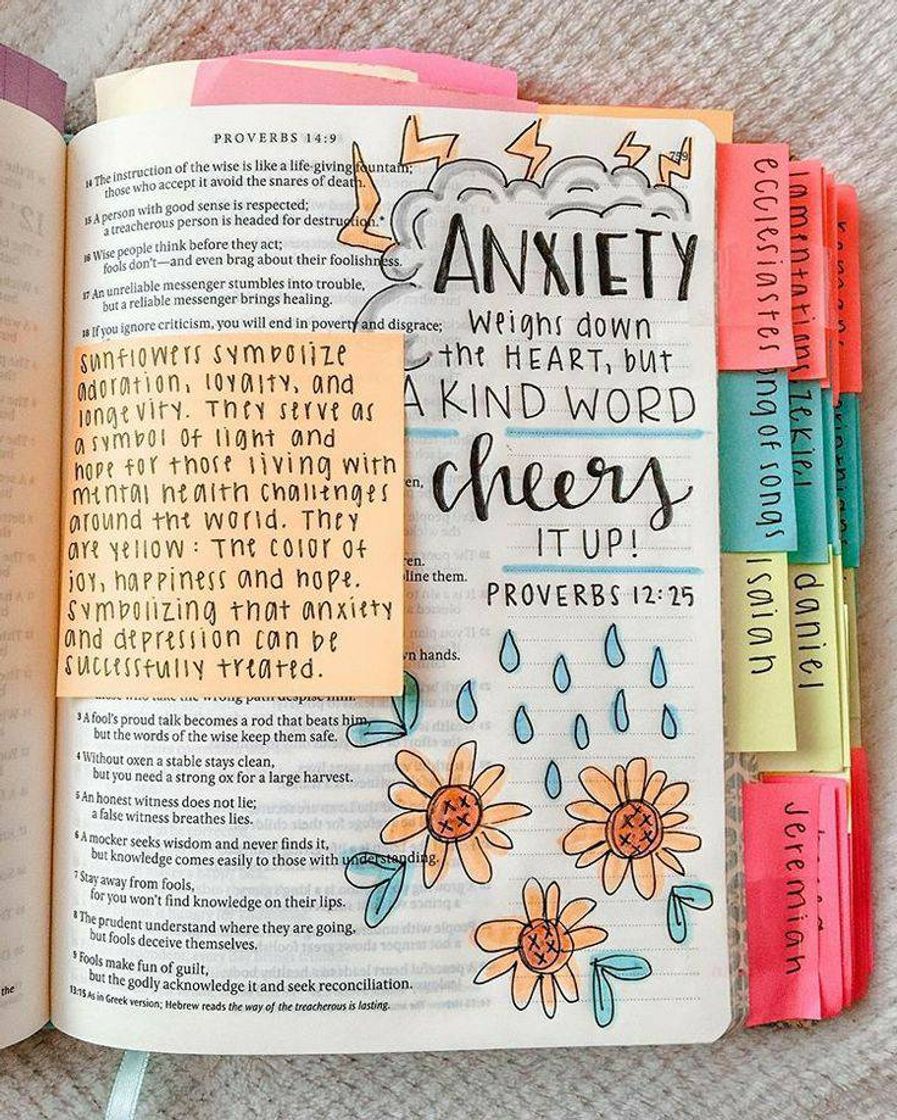 PROVERBS 14:9
759
14 The instruction of the wise is like a life-giving fountain;
those who accept it avoid the snares of death.
15 A person with good sense is respected;
a treacherous person is headed for destruction.*
16 Wise people think before they act;
fools don't—and even brag about their foolishness.
17 An unreliable messenger stumbles into trouble,
but a reliable messenger brings healing.
18 If you ignore criticism, you will end in poverty and disgrace;
sunflowers symbolize
adoration, loyalty, and
longevity. They serve as
a symbol of light and
hope for those living with
mental health challenges
around the world. They
are yellow: The color of
joy, happiness and hope.
Symbolizing that anxiety
and depression can be
successfully treated.
en,
ren.
line them.
n hands.
those who take the wrong path despise him.
3 A fool's proud talk becomes a rod that beats him,
but the words of the wise keep them safe.
4 Without oxen a stable stays clean,
but you need a strong ox for a large harvest.
5 An honest witness does not lie;
a false witness breathes lies.
6 A mocker seeks wisdom and never finds it,
but knowledge comes easily to those with understanding.
7 Stay away from fools,
for you won't find knowledge on their lips.
8 The prudent understand where they are going,
but fools deceive themselves.
9 Fools make fun of guilt,
but the godly acknowledge it and seek reconciliation.
13:15 As in Greek version; Hebrew reads the way of the treacherous is lasting.
ANXIETY
weighs down
the HEART, but
A KIND WORD
cheers
IT UP!
PROVERBS 12:25
ecclesiastes
lamentations
ong of songs
zekiel
isaiah
daniel
Jeremiah
the